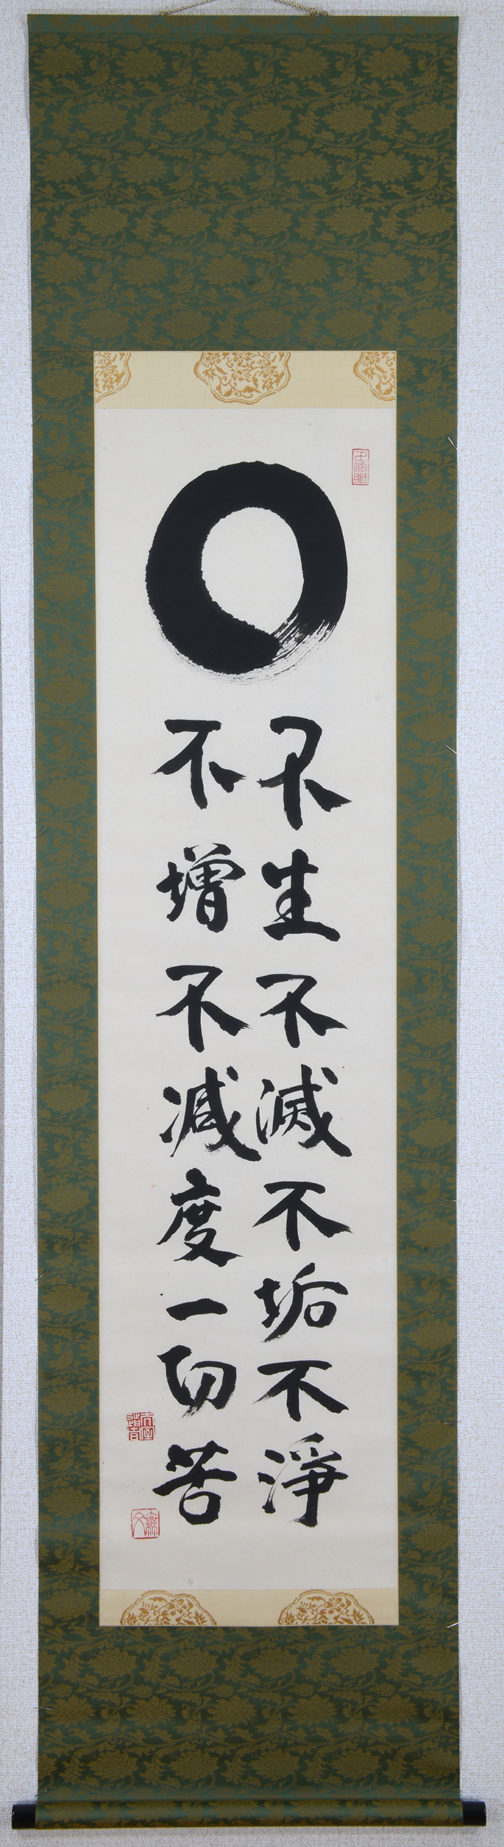 不生不滅不垢不淨
不增不減度一切苦